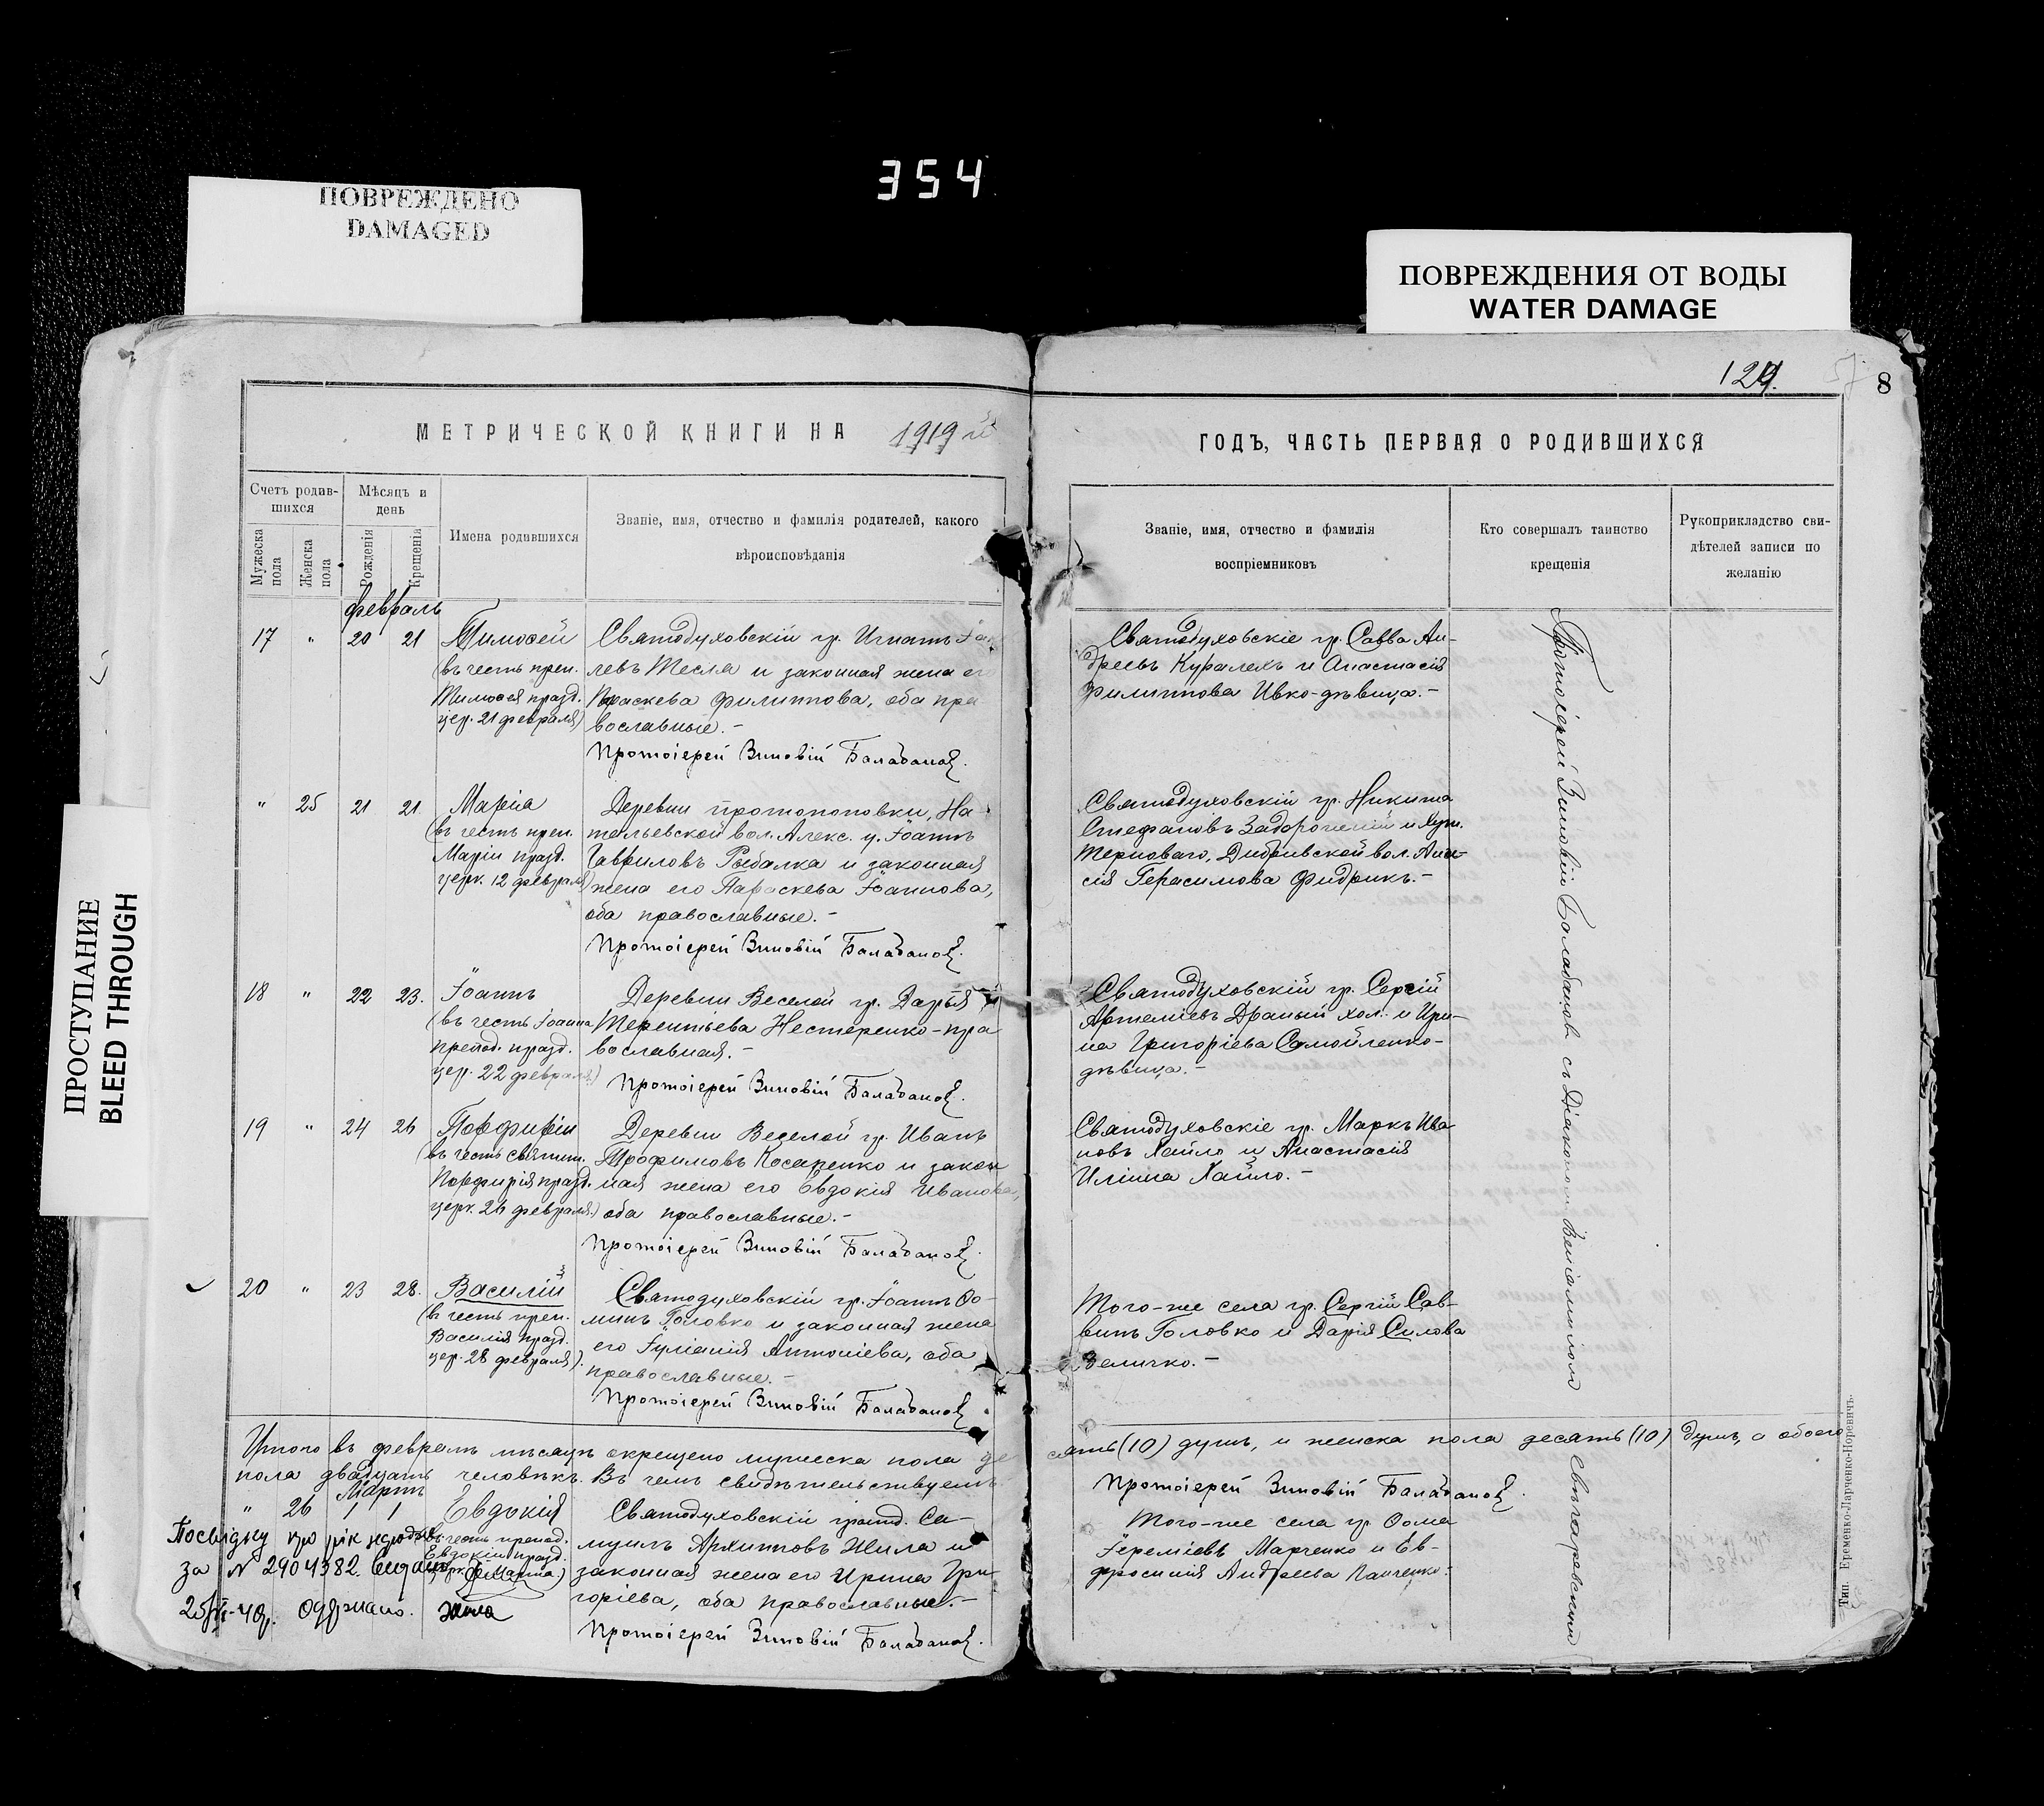 354
ПОВРЕЖДЕНО
DAMAGED
ПОВРЕЖДЕНИЯ ОТ ВОДЫ
WATER DAMAGE
ПРОСТУПАНИЕ
BLEED THROUGH
8
МЕТРИЧЕСКОЙ КНИГИ НА 1919 й
ГОДЪ, ЧАСТЬ ПЕРВАЯ О РОДИВШИХСЯ
Счетъ родив-
шихся
Мужеска
пола
Женска
пола
Мѣсяцъ и
день
Рожденія
Крещенія
Имена родившихся
Званіе, имя, отчество и фамилія родителей, какого
вѣроисповѣданія
Званіе, имя, отчество и фамилія
воспріемниковъ
Кто совершалъ таинство
крещенія
Рукоприкладство сви-
дѣтелей записи по
желанію
февраль
17 " 20 21
Тимоѳей
(въ честь преп.
Тимоѳея празд.
цер. 21 февраля)
Святодуховскій гр. Игнатъ
левъ Тесля и законная жена ег
Параскева Филиппова, оба пра
вославные.-
Протоіерей Зиновій Балабановъ.
Святодуховскіе гр. Савва Ан-
дреевъ Куралехъ и Анастасія
Филиппова Ивко-дѣвица.-
" 25 21 21
Марія
(въ честь преп.
Маріи празд.
церк. 12 февраля)
Деревни Протопоповки, На-
тальевской вол. Алекс. у. Іоаннъ
Гавриловъ Рыбалка и законная
жена его Параскева Іоаннова,
оба православные.-
Протоіерей Зиновій Балабановъ.
Святодуховскій гр. Никита
Стефановъ Задорожній и хут.
Терноваго, вол.
сія Герасимова Фидрикъ.-
18 " 22 23.
Іоаннъ
(въ честь Іоанна
препод. празд.
цер. 22 февраля)
Деревни Веселой гр. Дарья
Терентьева Нестеренко-пра
вославная.-
Протоіерей Зиновій Балабановъ.
Святодуховскій гр. Сергій
Артеміевъ Драный хол. и Ири-
на Григоріева Самойленко-
дѣвица.-
19 " 24 26
Порфирій
(въ честь святит.
Порфирія празд.
церк. 26 февраля)
Деревни Веселой гр. Иванъ
Трофимовъ Косаренко и закон
ная жена его Евдокія Иванова,
оба православные.-
Протоіерей Зиновій Балабановъ.
Святодуховскіе гр. Маркъ Ива
новъ Хайло и Анастасія
Иліина Хайло.-
20 " 23 28.
Василій
(въ честь преп.
Василія празд.
цер. 28 февраля).
Святодуховскій гр. Іоаннъ Ѳо-
минъ Головко и законная жена
его Іуліанія Антоніева, оба
православные.-
Протоіерей Зиновій Балабановъ.
Того-же села гр. Сергій Сав-
винъ Головко и Дарія Силова
Величко.-
Протоіерей Зиновій Балабановъ съ Діакономъ Веніаминомъ
Итого въ февралѣ мѣсяцѣ окрещено мужеска пола де
сять (10) душъ, и женска пола десять (10) душъ, а обоего
пола двадцать человѣкъ. Въ чемъ свидѣтельствуемъ
Протоіерей Зиновій Балабановъ.
Мартъ
" 26 1 1
Евдокія
(въ честь препод.
Евдокіи празд.
Марта.)
Святодуховскій гражд. Са-
муилъ Архиповъ Жила и
законная жена его Ирина Гри-
горіева, оба православные.-
Протоіерей Зиновій Балабановъ.
Того-же села гр. Ѳома
Іереміевъ Марченко и Ев-
фросинія Андреева Панченко.
Посвідку про рік
за N 2904382.
одержано. Жила
Тип. Еременко-Ларченко-Норевичъ.